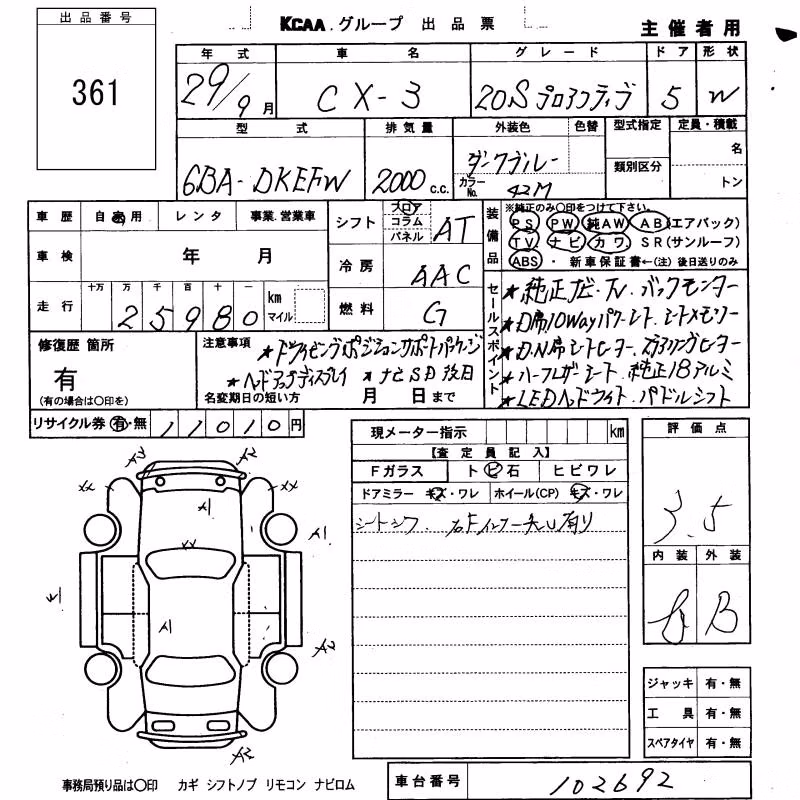 出品番号
361
KCAA. グループ 出品票
主催者用
年式 車名 グレード ドア 形状
29/9月 CX-3 20Sプロアクティブ 5 W
型式 排気量 外装色 色替 型式指定 定員・積載
名
6BA-DKEFW 2000 c.c. ダークブルー 類別区分
カラーNo. 42M トン
車歴 自家用 レンタ 事業.営業車
シフト フロア コラム パネル AT
車検 年 月
冷房 AAC
走行 十万 万 千 百 十 一
25980 km マイル
燃料 G
装備品
※純正のみ〇印をつけて下さい。
PS PW 純AW AB(エアバック)
TV ナビ カワ SR(サンルーフ)
ABS ・ 新車保証書←(注)後日送りのみ
セールスポイント
★純正ナビ・TV・バックモニター
★D席10Wayパワーシート.シートメモリー
★D.N席シートヒーター.ステアリングヒーター
★ハーフレザーシート.純正18アルミ
★LEDヘッドライト.パドルシフト
修復歴 箇所
有
(有の場合は〇印を)
注意事項
★ドライビングポジションサポートパッケージ
★ヘッドアップディスプレイ ★ナビSD後日
名変期日の短い方 月 日まで
リサイクル券 有・無 11010円
現メーター指示 km
【査定員記入】
Fガラス ト ビ 石 ヒビワレ
ドアミラー キズ・ワレ ホイール(CP) キズ・ワレ
シートシワ. 右Fインナー矢い有り
評価点
3.5
内装 外装
B B
A2 A2
XX XX
A1 A1
XX
A1
A2
A2 A2
ジャッキ 有・無
工具 有・無
スペアタイヤ 有・無
事務局預り品は〇印 カギ シフトノブ リモコン ナビロム
車台番号 102692